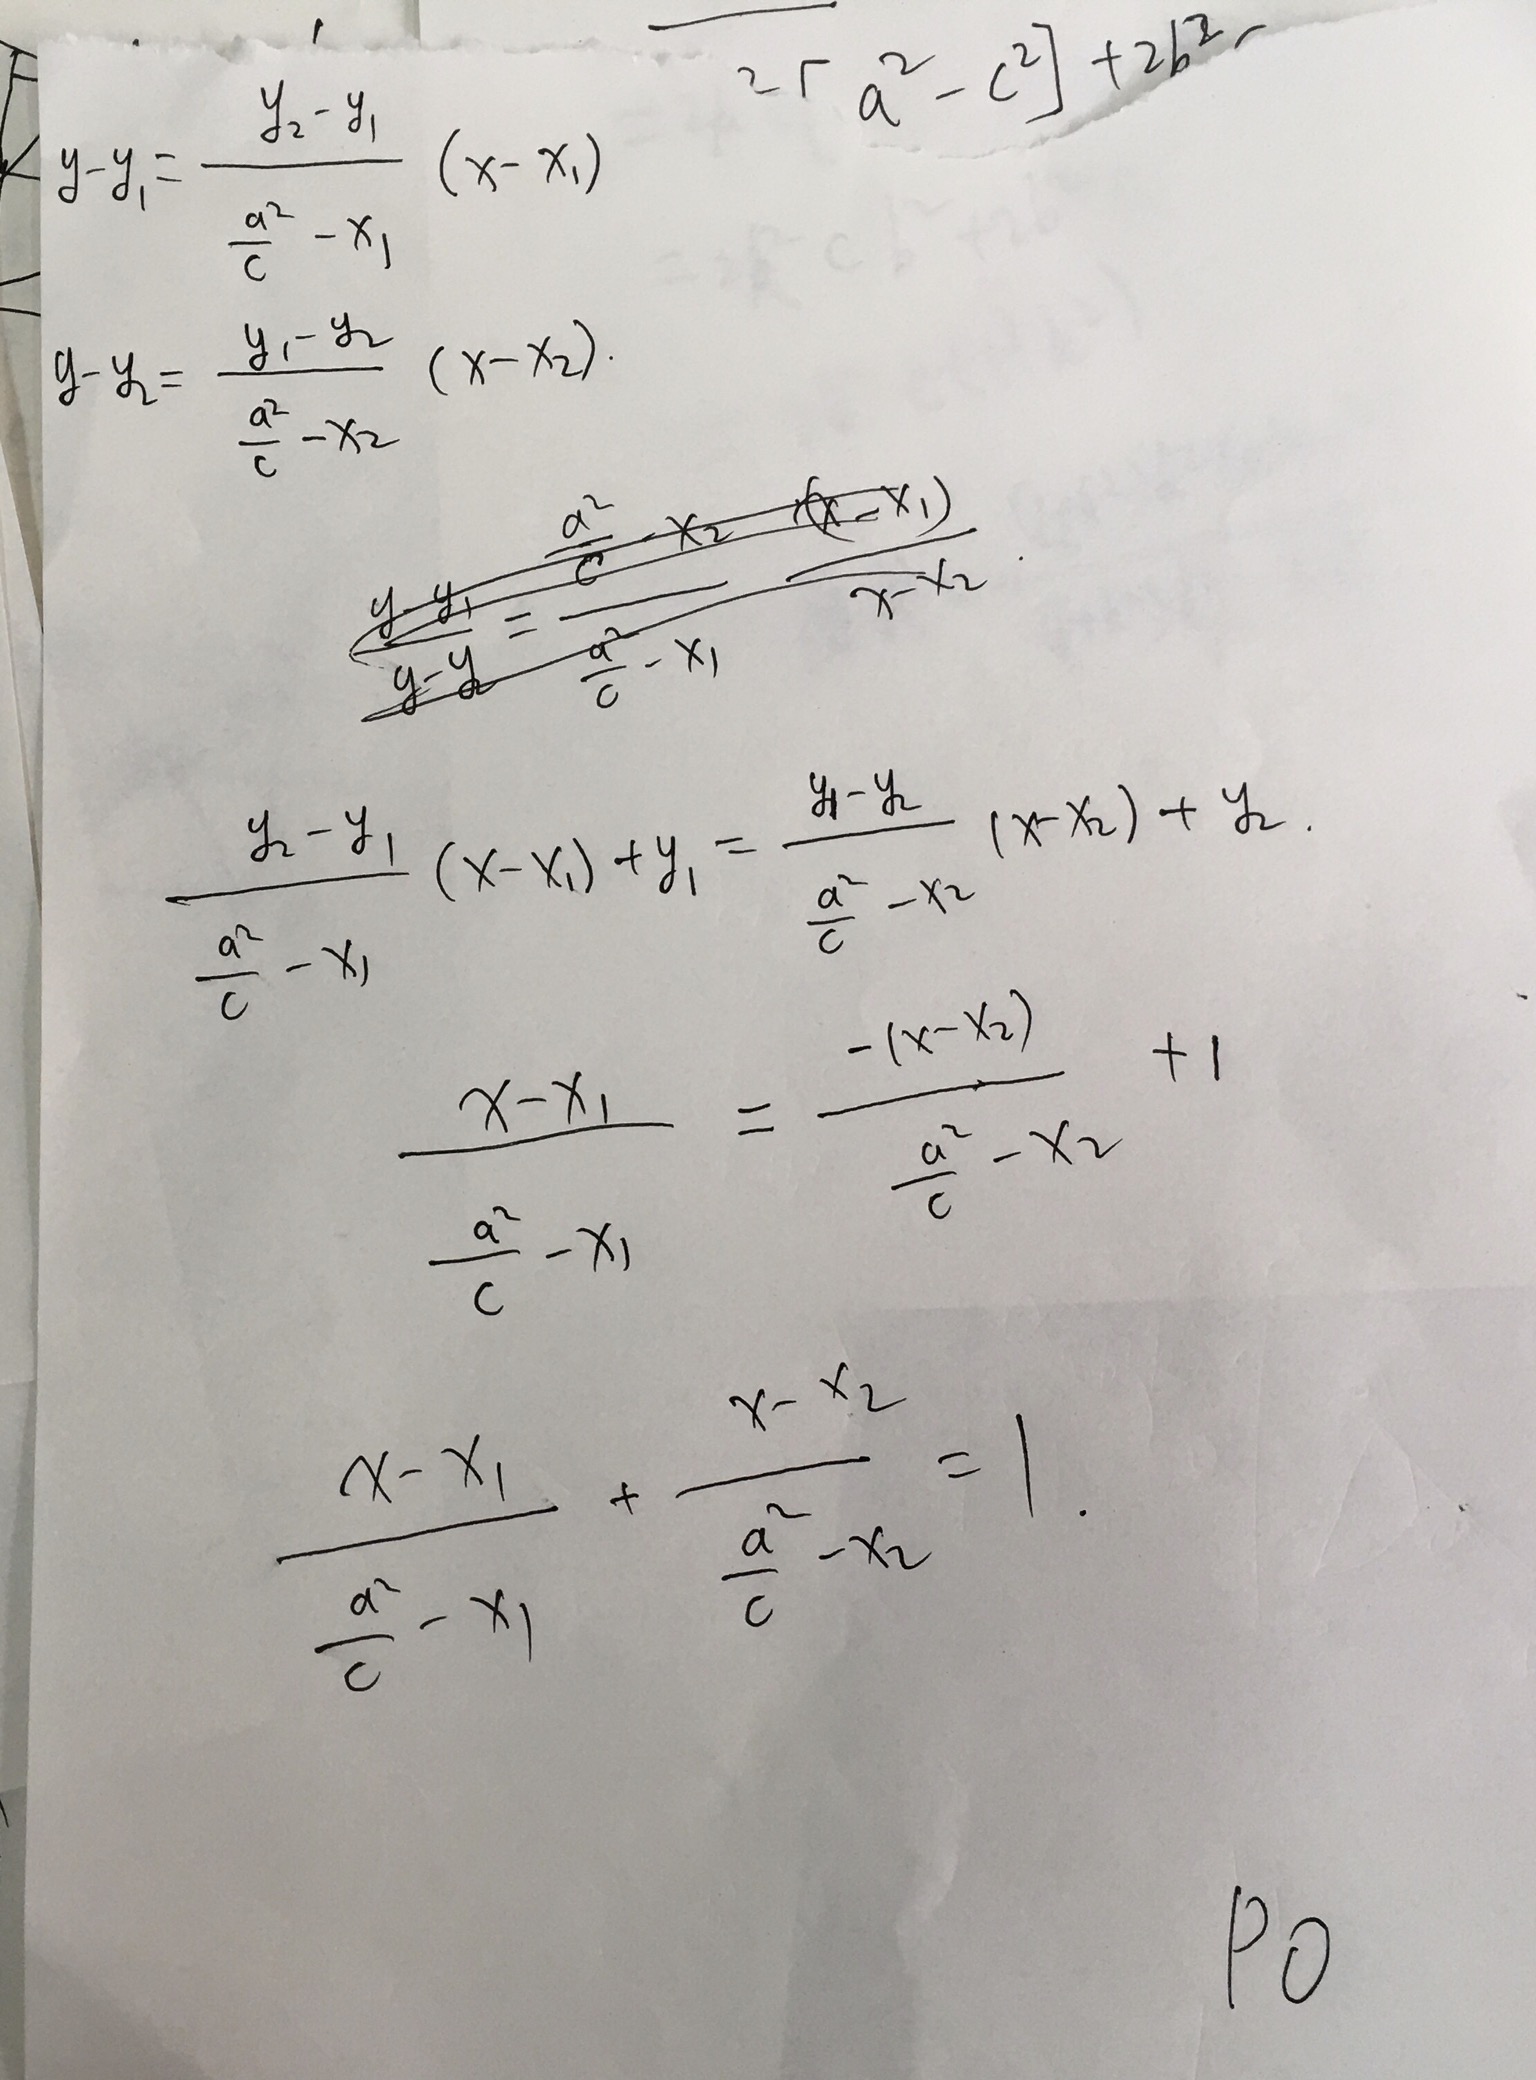 2[a²-c²]+2b²-
y-y₁=\frac{y₂-y₁}{\frac{a²}{c}-x₁}(x-x₁)
y-y₂=\frac{y₁-y₂}{\frac{a²}{c}-x₂}(x-x₂).
\frac{y-y₁}{y-y₂}=\frac{\frac{a²}{c}-x₂}{\frac{a²}{c}-x₁}\frac{(x-x₁)}{x-x₂}.
\frac{y₂-y₁}{\frac{a²}{c}-x₁}(x-x₁)+y₁=\frac{y₁-y₂}{\frac{a²}{c}-x₂}(x-x₂)+y₂.
\frac{x-x₁}{\frac{a²}{c}-x₁}=\frac{-(x-x₂)}{\frac{a²}{c}-x₂}+1
\frac{x-x₁}{\frac{a²}{c}-x₁}+\frac{x-x₂}{\frac{a²}{c}-x₂}=1.
PO